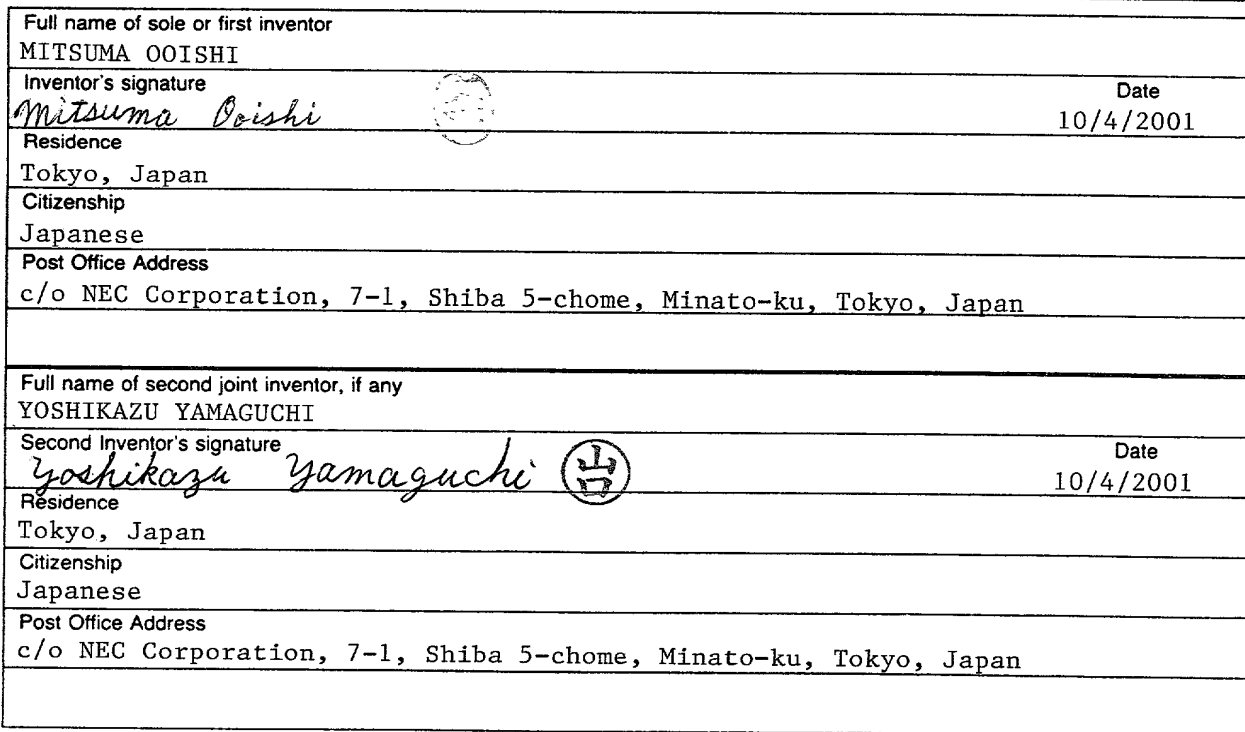 Full name of sole or first inventor
MITSUMA OOISHI
Inventor's signature
Date
Mitsuma Ooishi
10/4/2001
Residence
Tokyo, Japan
Citizenship
Japanese
Post Office Address
c/o NEC Corporation, 7-1, Shiba 5-chome, Minato-ku, Tokyo, Japan
Full name of second joint inventor, if any
YOSHIKAZU YAMAGUCHI
Second Inventor's signature
Date
Yoshikazu Yamaguchi 山口
10/4/2001
Residence
Tokyo, Japan
Citizenship
Japanese
Post Office Address
c/o NEC Corporation, 7-1, Shiba 5-chome, Minato-ku, Tokyo, Japan